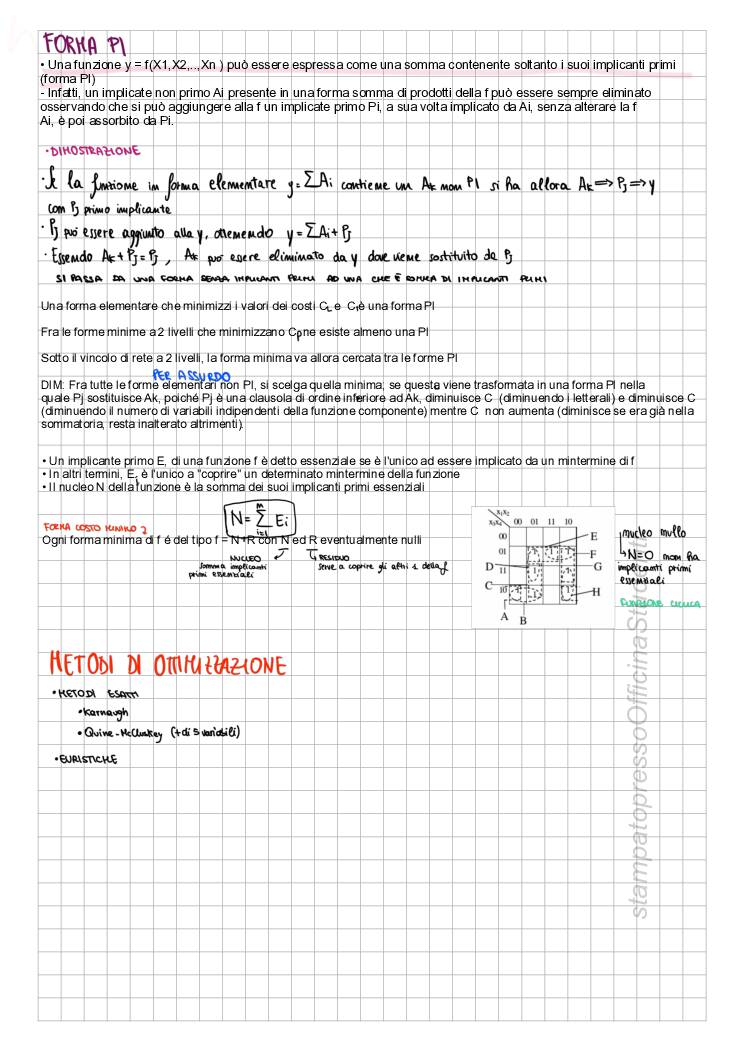 FORMA PI
• Una funzione y = f(X1,X2,..,Xn ) può essere espressa come una somma contenente soltanto i suoi implicanti primi
(forma PI)
- Infatti, un implicante non primo Ai presente in una forma somma di prodotti della f può essere sempre eliminato
osservando che si può aggiungere alla f un implicate primo Pi, a sua volta implicato da Ai, senza alterare la f
Ai, è poi assorbito da Pi.
• DIMOSTRAZIONE
• Se la funzione in forma elementare y = ∑Ai contiene un Ak non PI si ha allora Ak ⟹ Pj ⟹ y
con Pj primo implicante
• Pj può essere aggiunto alla y, ottenendo y = ∑Ai + Pj
• Essendo Ak + Pj = Pj , Ak può essere eliminato da y dove viene sostituito da Pj
SI PASSA DA UNA FORMA SENZA IMPLICANTI PRIMI AD UNA CHE È SOMMA DI IMPLICANTI PRIMI
Una forma elementare che minimizzi i valori dei costi CL e Ci è una forma PI
Fra le forme minime a 2 livelli che minimizzano Cp ne esiste almeno una PI
Sotto il vincolo di rete a 2 livelli, la forma minima va allora cercata tra le forme PI
PER ASSURDO
DIM: Fra tutte le forme elementari non PI, si scelga quella minima; se questa viene trasformata in una forma PI nella
quale Pj sostituisce Ak, poiché Pj è una clausola di ordine inferiore ad Ak, diminuisce C (diminuendo i letterali) e diminuisce C
(diminuendo il numero di variabili indipendenti della funzione componente) mentre C non aumenta (diminisce se era già nella
sommatoria, resta inalterato altrimenti).
• Un implicante primo E, di una funzione f è detto essenziale se è l'unico ad essere implicato da un mintermine di f
• In altri termini, Ei è l'unico a "coprire" un determinato mintermine della funzione
• Il nucleo N della funzione è la somma dei suoi implicanti primi essenziali
N = ∑ Ei
m
i=1
FORMA COSTO MINIMO 2
Ogni forma minima di f é del tipo f = N+R con N ed R eventualmente nulli
NUCLEO
somma implicanti
primi essenziali
RESIDUO
serve a coprire gli altri 1 della f
x1x2
x3x4 00 01 11 10
00
01 1 1 1
11 1 1
10 1 1 1
A B C D E F G H
nucleo nullo
↳ N=0 non ha
implicanti primi
essenziali
FUNZIONE CICLICA
METODI DI OTTIMIZZAZIONE
• METODI ESATTI
• Karnaugh
• Quine-McCluskey (+di 5 variabili)
• EURISTICHE